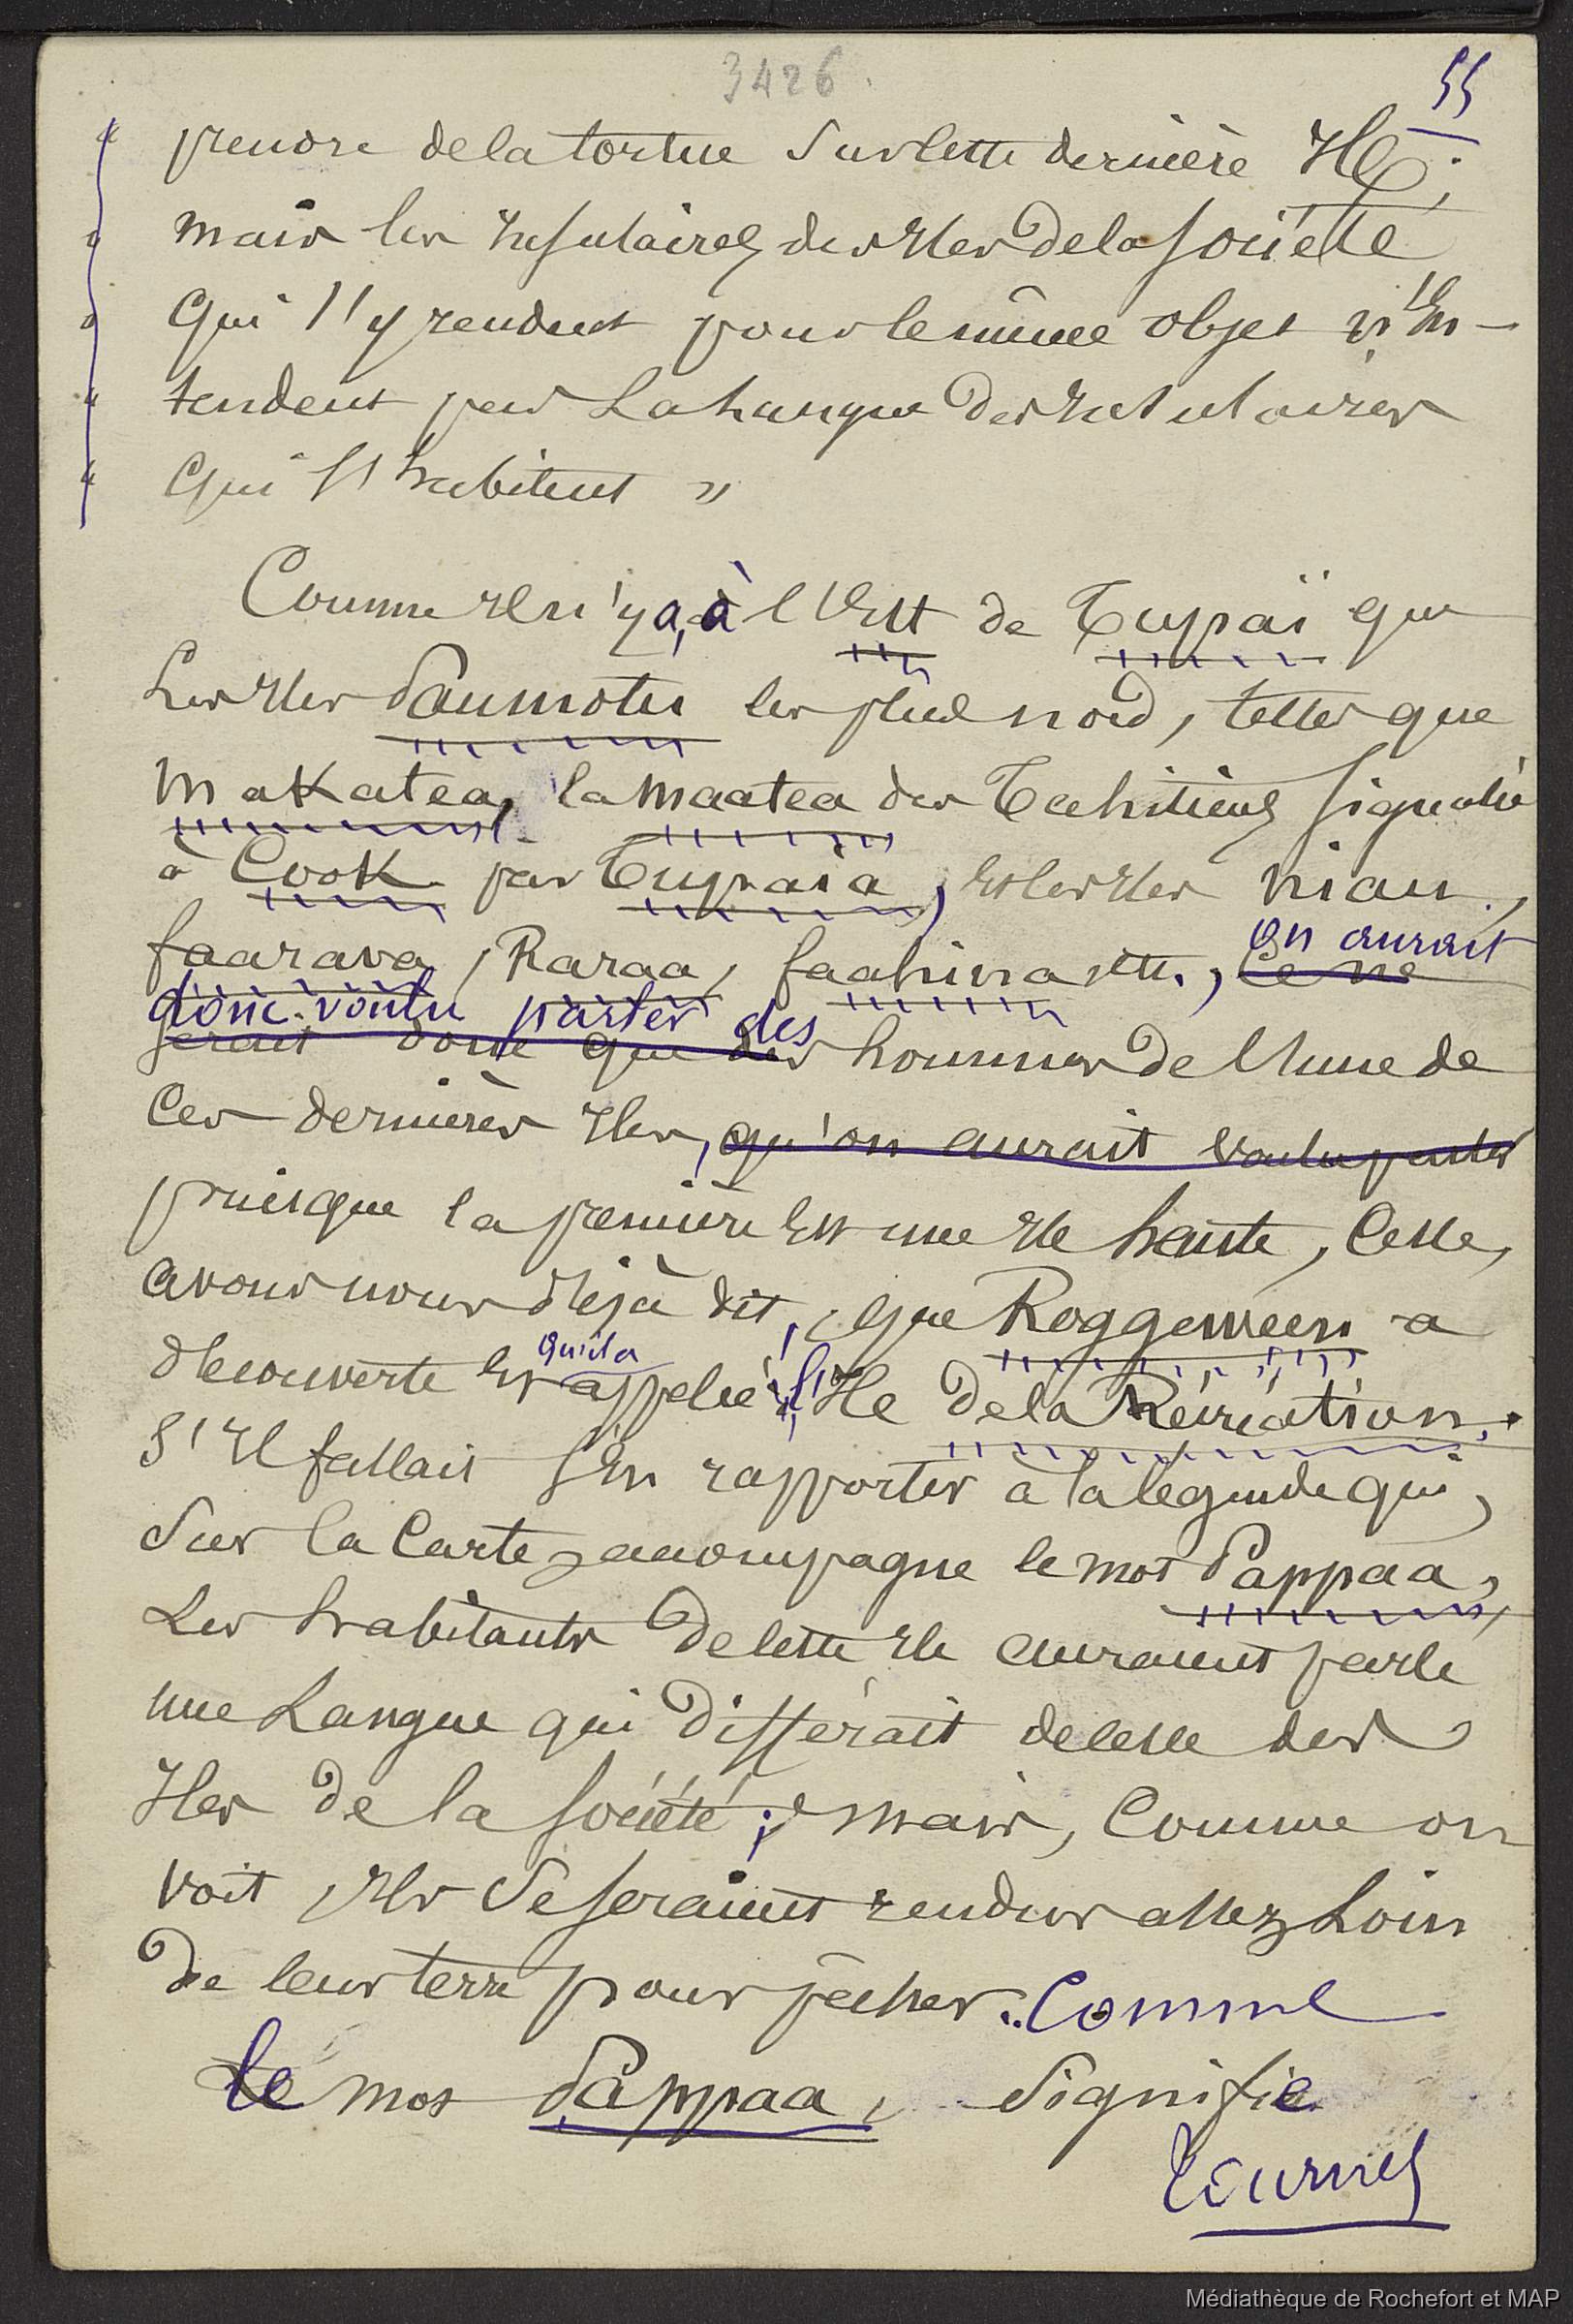 3426.
55
« prendre de la tortue sur cette dernière Ile;
« mais les Insulaires des Iles de la Société
« qui s'y rendent pour le même objet n'en-
« tendent pas la langue des Insulaires
« qui l'habitent »
Comme il n'y a, à l'Est de Tupaï que
les Iles Paumotu les plus nord, telles que
Makatea, la Maatea des Tahitiens signalée
à Cook par Tupaia, et les Iles Niau,
faarava, Raraa, faahina etc., Ce ne
on aurait
donc voulu parler des
serait donc que des hommes de l'une de
ces dernières Iles, qu'on aurait voulu parler
puisque la première est une Ile haute, celle,
avons nous déjà dit, que Roggeween a
découverte et qu'il a appelée l'Ile de la Récréation.
S'il fallait s'en rapporter à la légende qui,
sur la carte, accompagne le mot Pappaa,
les habitants de cette Ile auraient parlé
une langue qui différait de celle des
Iles de la Société; mais, comme on
voit, ils se seraient rendus assez loin
de leur terre pour pêcher. Comme
le mot Pappaa, signifie
tournez
Médiathèque de Rochefort et MAP